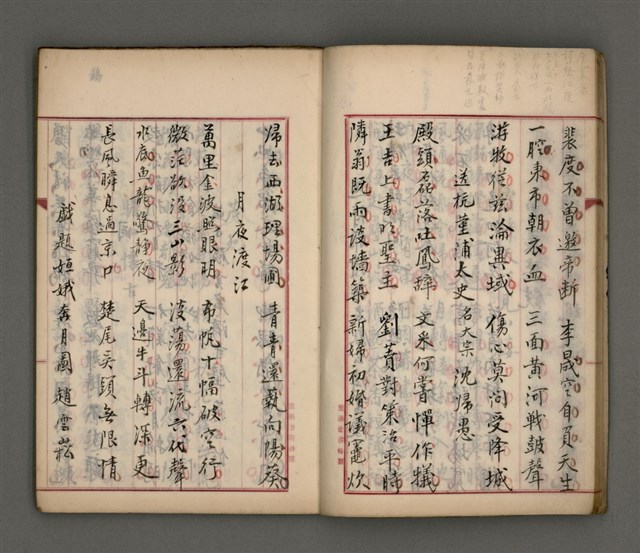 裴度不曾邀帝斷 李晟空自負天生
一腔東市朝衣血 三面黃河戰鼓聲
游牧從茲淪異域 傷心莫問受降城
送杭堇浦太史 名大宗 沈歸愚
殿頭磊落吐鳳辭 文采何嘗憚作犧
王吉上書明聖主 劉蕡對策治平時
隣翁既雨談墻築 新婦初婚議竈炊
歸去西湖理場圃 青青還藝向陽葵
月夜渡江
萬里金波照眼明 布帆十幅破空行
微茫欲沒三山影 浩蕩還流六代聲
水底魚龍驚靜夜 天邊牛斗轉深更
長風瞬息過京口 楚尾吳頭無限情
戲題姮娥奔月圖 趙雲崧